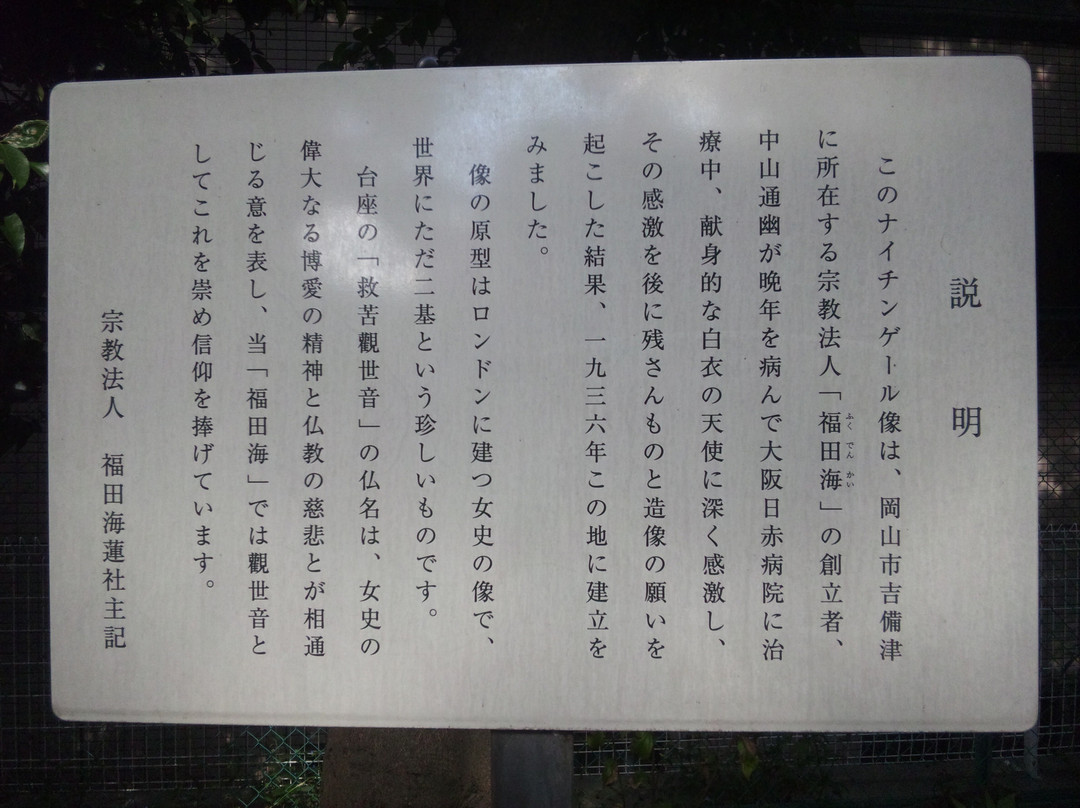 説明
このナイチンゲール像は、岡山市吉備津
に所在する宗教法人「福田海」の創立者、
ふくでんかい
中山通幽が晩年を病んで大阪日赤病院に治
療中、献身的な白衣の天使に深く感激し、
その感激を後に残さんものと造像の願いを
起こした結果、一九三六年この地に建立を
みました。
像の原型はロンドンに建つ女史の像で、
世界にただ二基という珍しいものです。
台座の「救苦觀世音」の仏名は、女史の
偉大なる博愛の精神と仏教の慈悲とが相通
じる意を表し、当「福田海」では觀世音と
してこれを崇め信仰を捧げています。
宗教法人　福田海蓮社主記